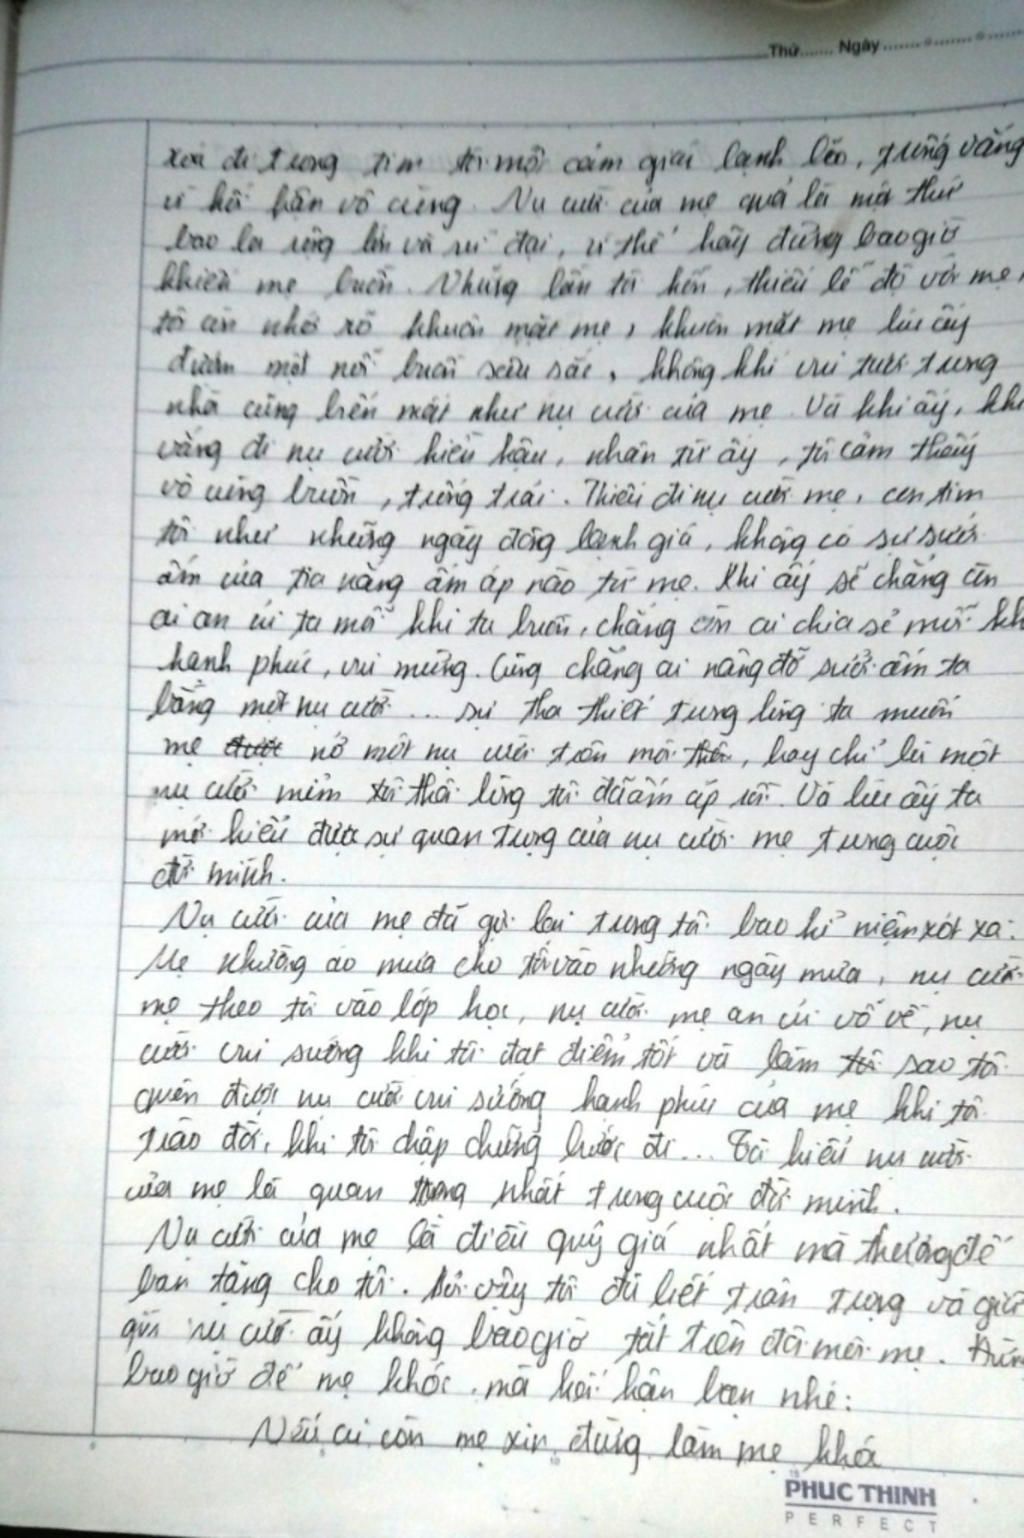 Thứ...... Ngày
xoá đi trong tim tôi một cảm giác lạnh lẽo, trống vắng
vì hối hận vô cùng. Nụ cười của mẹ quả là một thứ
bao la rộng lớn và vĩ đại, vì thế hãy đừng bao giờ
khiến mẹ buồn. Những lần tôi hỗn, thiếu lễ độ với mẹ,
tôi còn nhớ rõ khuôn mặt mẹ, khuôn mặt mẹ lúc ấy
đượm một nỗi buồn sâu sắc, không khí vui tươi trong
nhà cũng biến mất như nụ cười của mẹ. Và khi ấy, khi
vắng đi nụ cười hiền hậu, nhân từ ấy, tôi cảm thấy
vô cùng buồn, trống trải. Thiếu đi nụ cười mẹ, con tim
tôi như những ngày đông lạnh giá, không có sự sưởi
ấm của tia nắng ấm áp nào từ mẹ. Khi ấy sẽ chẳng còn
ai an ủi ta mỗi khi ta buồn, chẳng còn ai chia sẻ mỗi kh
hạnh phúc, vui mừng. Cũng chẳng ai nâng đỡ sưởi ấm ta
bằng một nụ cười... sự tha thiết trong lòng ta muốn
mẹ nở một nụ cười trên môi, hay chỉ là một
nụ cười mỉm thôi lòng tôi đã ấm áp rồi. Và lúc ấy ta
mới hiểu được sự quan trọng của nụ cười mẹ trong cuộc
đời mình.
Nụ cười của mẹ đã gợi lại trong tôi bao kỉ niệm xót xa.
Mẹ nhường áo mưa cho tôi vào những ngày mưa, nụ cười
mẹ theo tôi vào lớp học, nụ cười mẹ an ủi vỗ về, nụ
cười vui sướng khi tôi đạt điểm tốt và làm sao tôi
quên được nụ cười vui sướng hạnh phúc của mẹ khi tôi
chào đời, khi tôi chập chững bước đi... Tôi hiểu nụ cười
của mẹ là quan trọng nhất trong cuộc đời mình.
Nụ cười của mẹ là điều quý giá nhất mà thượng đế
ban tặng cho tôi. Bởi vậy tôi đã biết trân trọng và giữ
gìn nụ cười ấy không bao giờ tắt trên đôi môi mẹ. Đừng
bao giờ để mẹ khóc mà hối hận bạn nhé:
Nếu ai còn mẹ xin đừng làm mẹ khó
PHUC THINH
PERFECT